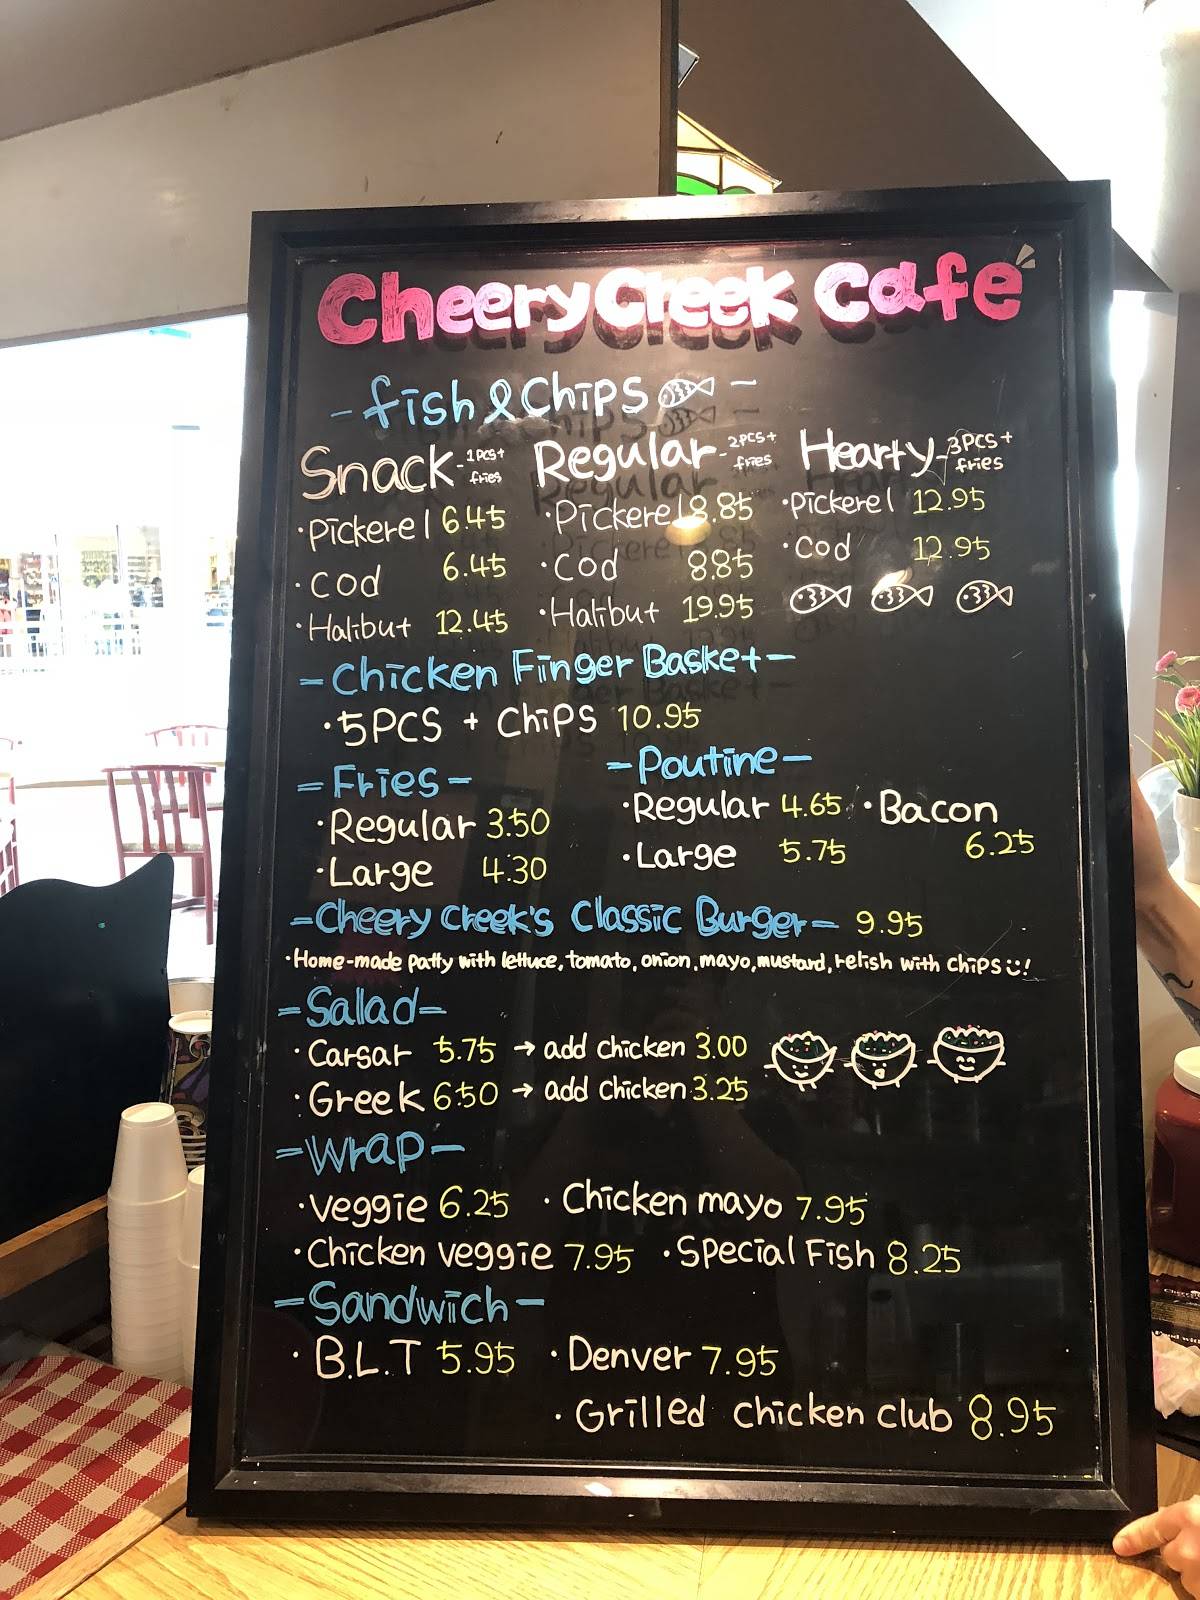 Cheery Creek Cafe
- fish & Chips -
Snack -1pcs+ fries Regular -2pcs+ fries Hearty -3pcs+ fries
·Pickerel 6.45 ·Pickerel 8.85 ·Pickerel 12.95
·Cod 6.45 ·Cod 8.85 ·Cod 12.95
·Halibut 12.45 ·Halibut 19.95
-Chicken Finger Basket-
·5PCS + Chips 10.95
-Fries- -Poutine-
·Regular 3.50 ·Regular 4.65 ·Bacon 6.25
·Large 4.30 ·Large 5.75
-Cheery Creek's Classic Burger- 9.95
·Home-made patty with lettuce, tomato, onion, mayo, mustard, relish with chips!
-Salad-
·Carsar 5.75 → add chicken 3.00
·Greek 6.50 → add chicken 3.25
-Wrap-
·Veggie 6.25 ·Chicken mayo 7.95
·Chicken veggie 7.95 ·Special Fish 8.25
-Sandwich-
·B.L.T 5.95 ·Denver 7.95
·Grilled chicken club 8.95